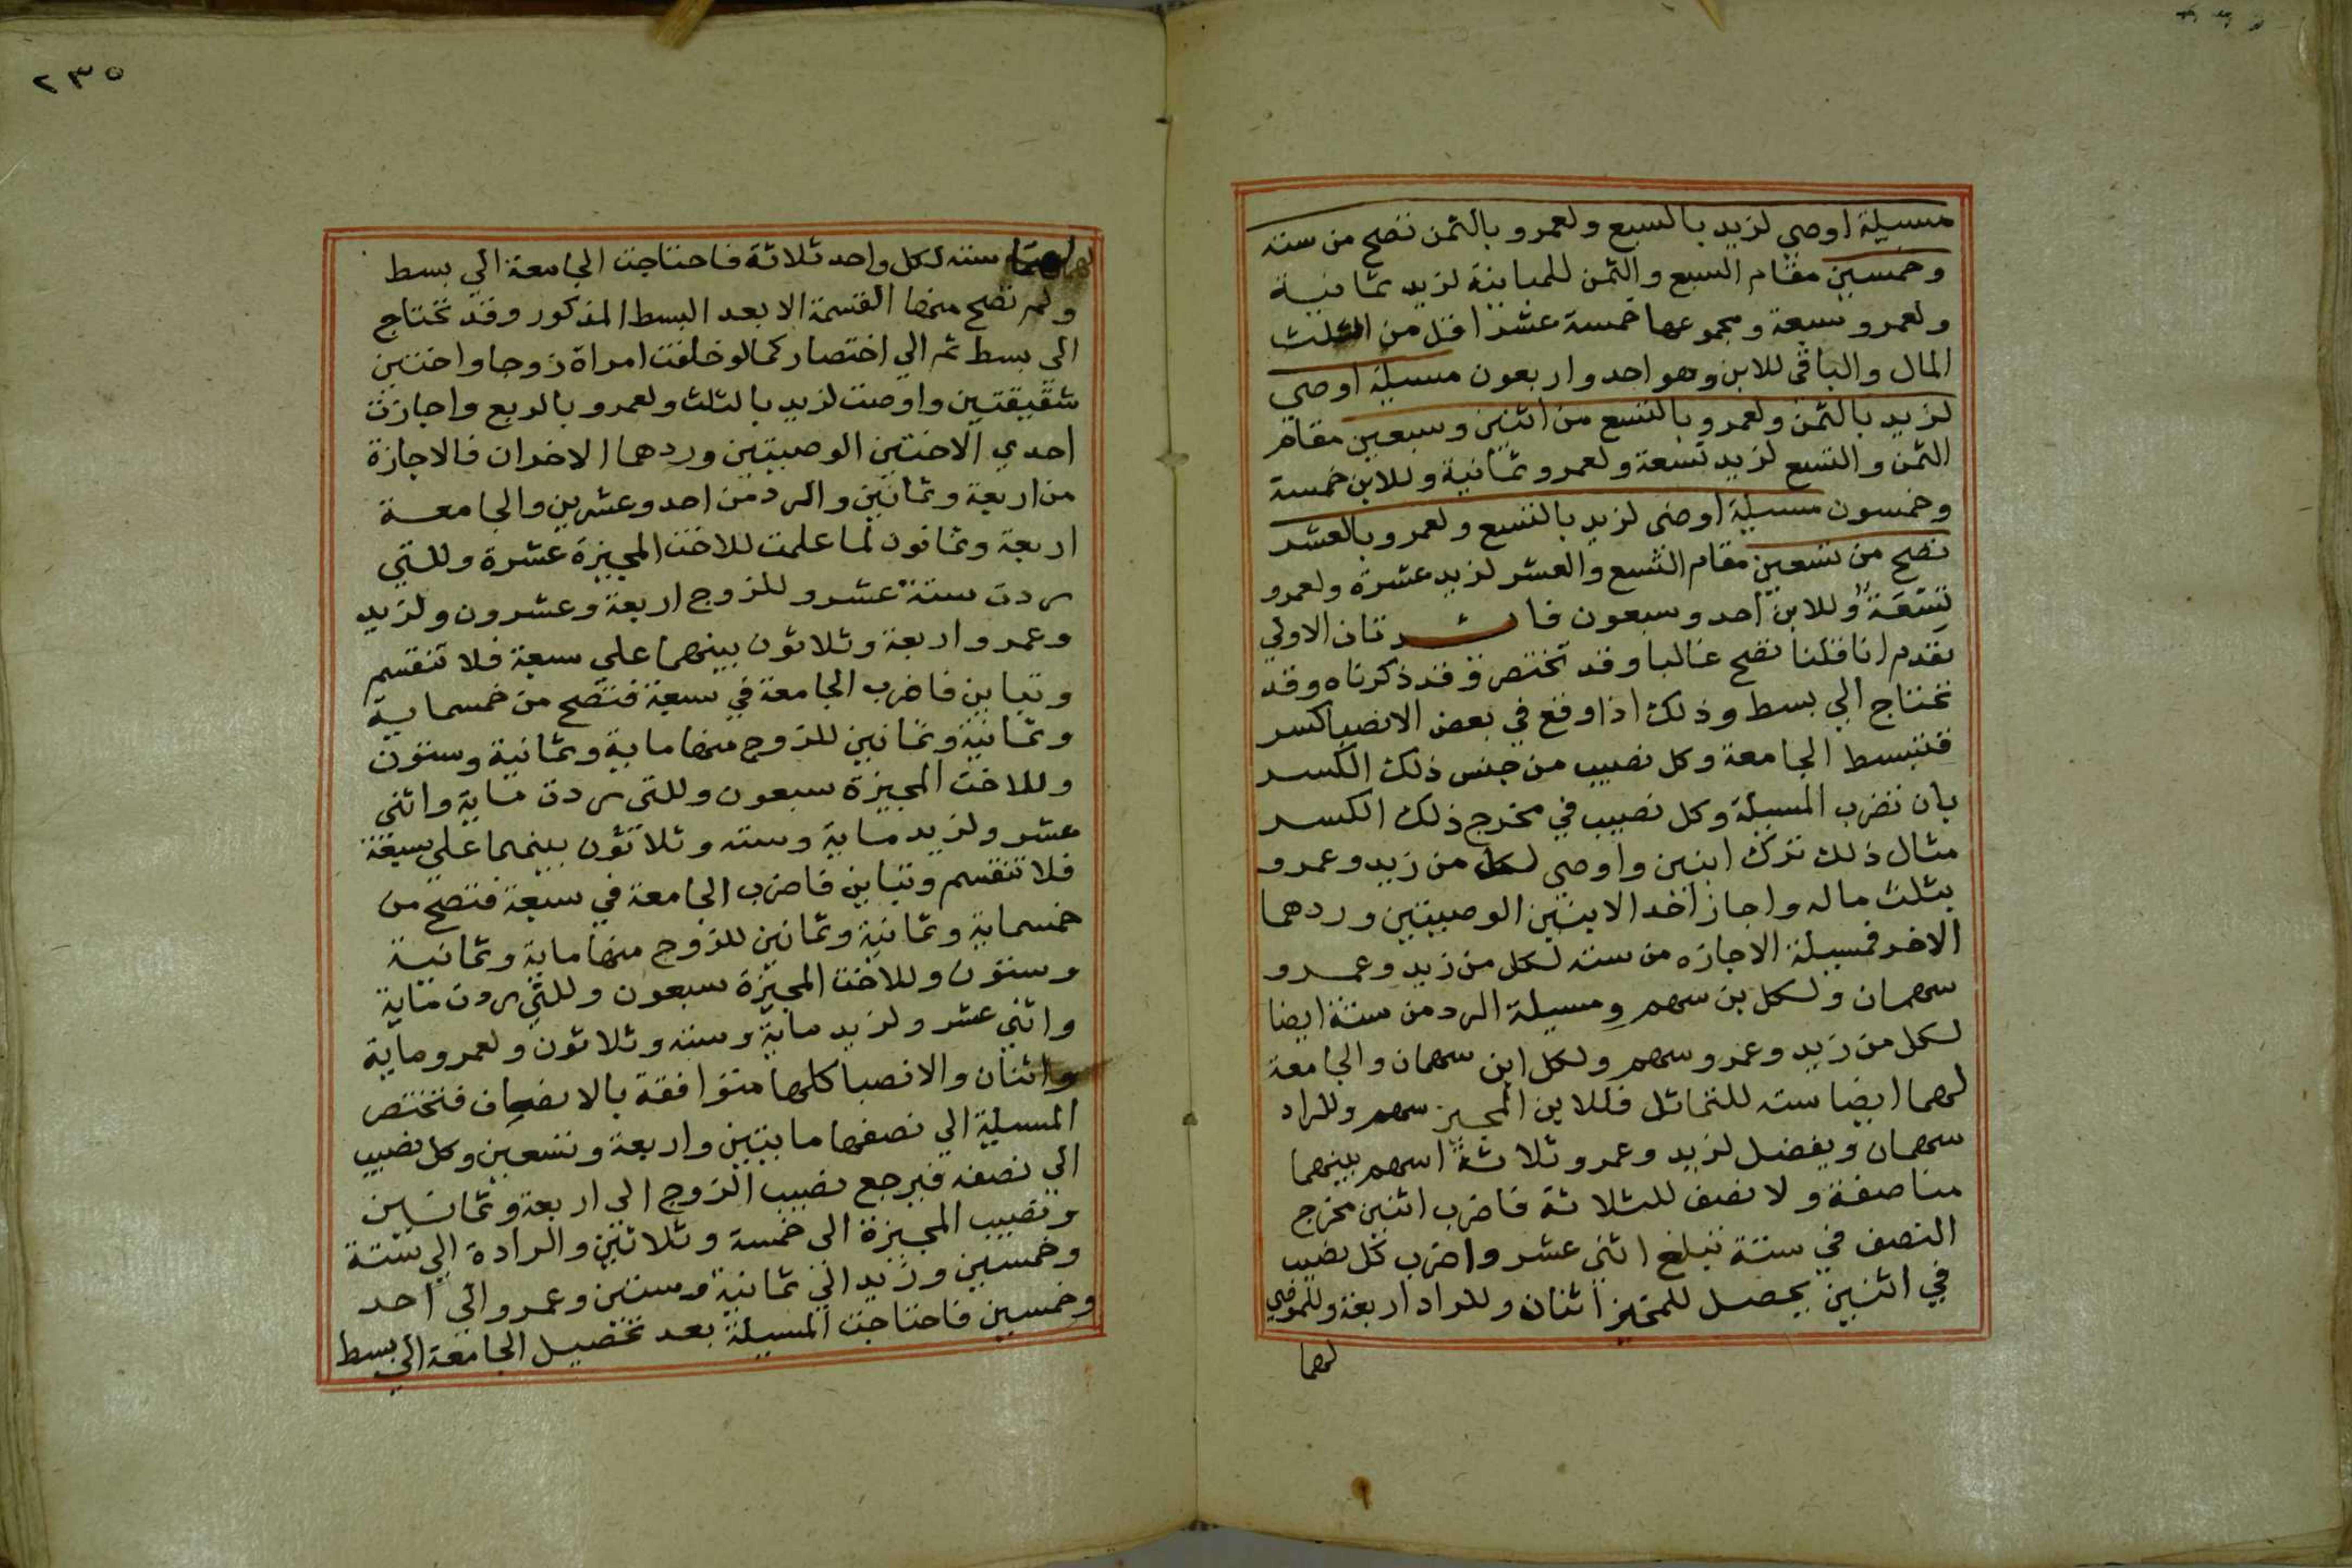 مسيلة اوصي لزيد بالسبع ولعمرو بالثمن تصح من سته
وخمسين مقام السبع والثمن للمباينة لزيد ثمانية
ولعمرو سبعة ومجموعها خمسة عشر اقل من الثلث
المال والباقي للابن وهو احد واربعون مسيلة اوصي
لزيد بالثمن ولعمرو بالتسع من اثنين وسبعين مقام
الثمن والتسع لزيد تسعة ولعمرو ثمانية وللابن خمسة
وخمسون مسيلة اوصى لزيد بالتسع ولعمرو بالعشر
تصح من تسعين مقام التسع والعشر لزيد عشرة ولعمرو
تسعة وللابن احد وسبعون فائدتان الاولي
تقدم انا قلنا تصح غالبا وقد تختصر وقد ذكرناه وقد
تحتاج الي بسط وذلك اذا وقع في بعض الانصبا كسر
فتبسط الجامعة وكل نصيب من جنس ذلك الكسر
بان تضرب المسيلة وكل نصيب في مخرج ذلك الكسر
مثال ذلك ترك ابنين واوصي لكل من زيد وعمرو
بثلث ماله واجاز احد الابنين الوصيتين وردهما
الاخر فمسيلة الاجازه من سته لكل من زيد وعمرو
سهمان ولكل بن سهم ومسيلة الرد من ستة ايضا
لكل من زيد وعمرو سهم ولكل ابن سهمان والجامعة
لهما ايضا سته للتماثل فللابن المجيز سهم وللراد
سهمان ويفضل لزيد وعمرو ثلاثة اسهم بينهما
مناصفة ولا نصف للثلاثة فاضرب اثنين مخرج
النصف في ستة تبلغ اثني عشر واضرب كل نصيب
في اثنين يحصل للمجيز اثنان وللراد اربعة وللموصي
لهما
٢٣٥
لهما سته لكل واحد ثلاثة فاحتاجت الجامعة الي بسط
ولم تصح منها القسمة الا بعد البسط المذكور وقد تحتاج
الى بسط ثم الي اختصار كما لو خلفت امراة زوجا واختين
شقيقتين واوصت لزيد بالثلث ولعمرو بالربع واجازت
احدي الاختين الوصيتين وردهما الاخران فالاجازة
من اربعة وثمانين والرد من احد وعشرين والجامعة
اربعة وثمانون لما علمت للاخت المجيزة عشرة وللتي
ردت ستة عشر وللزوج اربعة وعشرون ولزيد
وعمرو اربعة وثلاثون بينهما علي سبعة فلا تنقسم
وتباين فاضرب الجامعة في سبعة فتصح من خمسماية
وثمانية وثمانين للزوج منها ماية وثمانية وستون
وللاخت المجيزة سبعون وللتى ردت ماية واثني
عشر ولزيد ماية وسته وثلاثون بينهما علي سبعة
فلا تنقسم وتباين فاضرب الجامعة في سبعة فتصح من
خمسماية وثمانية وثمانين للزوج منها ماية وثمانية
وستون وللاخت المجيزة سبعون وللتي ردت ماية
واثني عشر ولزيد ماية وسته وثلاثون ولعمرو ماية
واثنان والانصبا كلها متوافقة بالانصاف فتختصر
المسيلة الي نصفها مايتين واربعة وتسعين وكل نصيب
الى نصفه فيرجع نصيب الزوج الى اربعة وثمانين
ونصيب المجيزة الى خمسة وثلاثين والرادة الي ستة
وخمسين وزيد الي ثمانية وستين وعمرو الي احد
وخمسين فاحتاجت المسيلة بعد تحصيل الجامعة الي بسط